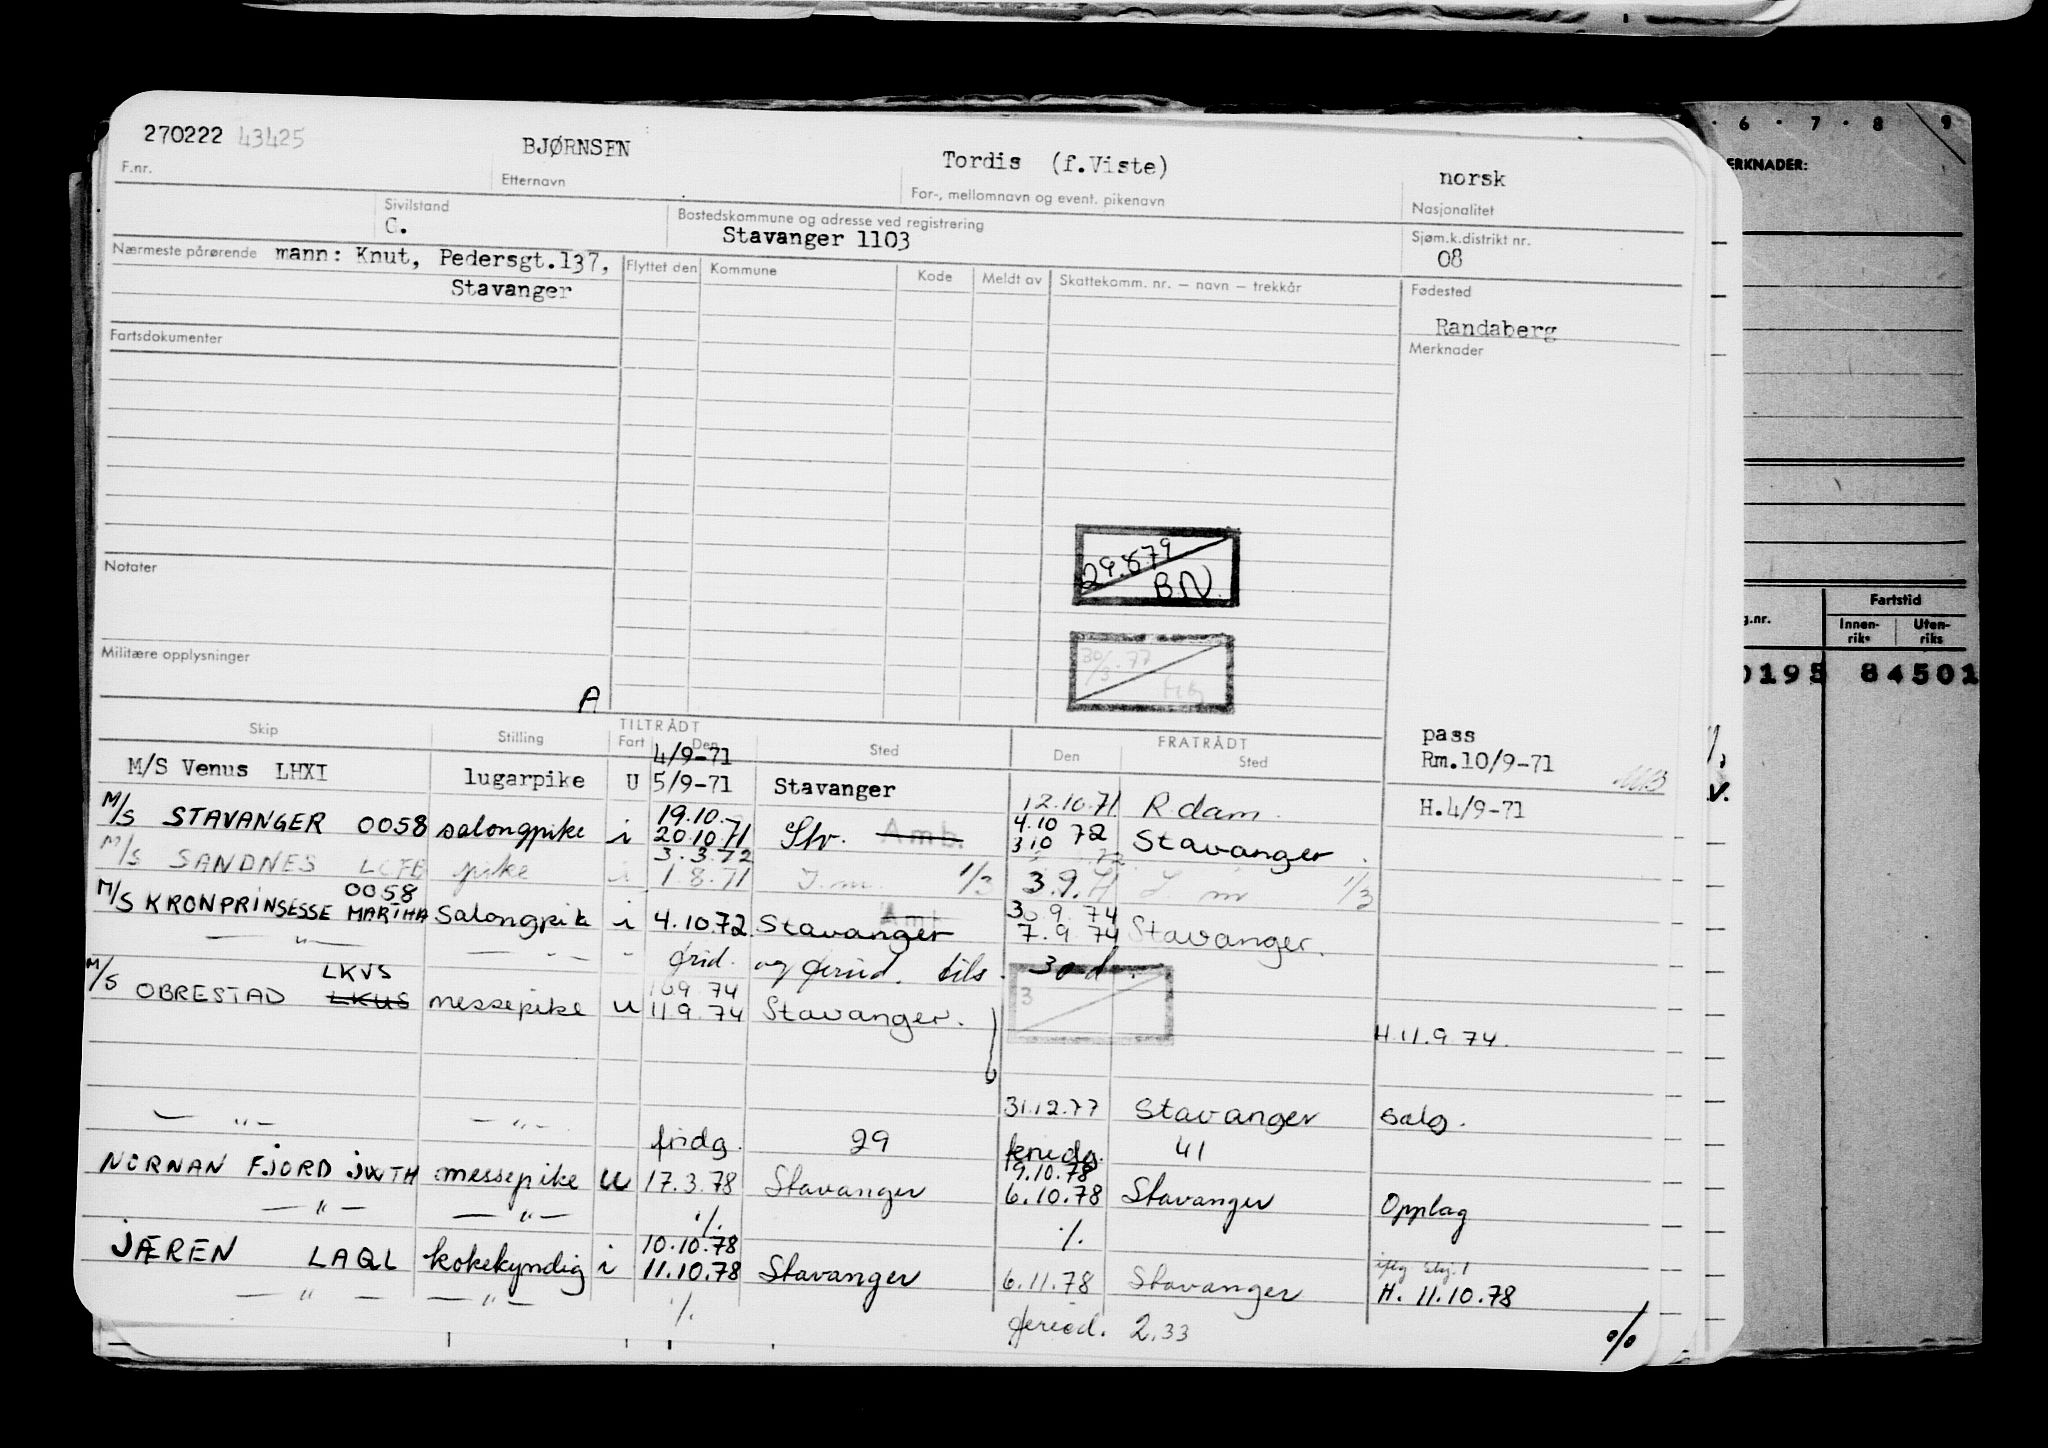 270222 43425 BJØRNSEN Tordis (f.Viste) norsk
F.nr. Etternavn For-, mellomnavn og event. pikenavn Nasjonalitet
Sivilstand Bostedskommune og adresse ved registrering Sjøm.k.distrikt nr.
G. Stavanger 1103 08
Nærmeste pårørende mann: Knut, Pedersgt.137, Flyttet den Kommune Kode Meldt av Skattekomm. nr. — navn — trekkår Fødested
Stavanger
Randaberg
Fartsdokumenter Merknader
29.879
B.N.
Notater
30/3.77
Militære opplysninger
A
Skip Stilling TILTRÅDT Fart Den Sted FRATRÅDT Den Sted
pass
4/9-71
M/S Venus LHXI lugarpike U 5/9-71 Stavanger 12.10.71 R.dam. Rm.10/9-71
H.4/9-71
19.10. 4.10
M/S STAVANGER 0058 salongpike i 20.10.71 Stv. Amb. 3.10 72 Stavanger.
3.3.72
M/S SANDNES pike i 1.8.71 1/3 3.9.71 1/3
0058 30.9.74
M/S KRONPRINSESSE MARTHA Salongpik i 4.10.72. Stavanger 7.9.74 Stavanger.
— " — — " — frid. og feried. tils. 30 d.
LKVS 10.9.74 3
M/S OBRESTAD LKUS messepike u 11.9.74 Stavanger.
H.11.9.74.
— " — — " — 31.12.77 Stavanger salg.
fridg. 29 feriedg. 41
9.10.78
NORNAN FJORD JWTH messepike U 17.3.78 Stavanger 6.10.78 Stavanger Opplag
— " — — " — ./. ./.
10.10.78
JÆREN LAQL kokekyndig i 11.10.78 Stavanger 6.11.78 Stavanger H. 11.10.78
— " — — " — ./. feried. 2.33
%
6 7 8 9
ERKNADER:
g.nr. Fartstid
Innen-riks Uten-riks
0195 84501